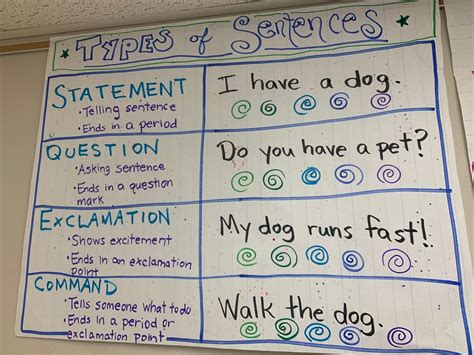 Types of Sentences
STATEMENT
• Telling sentence
• Ends in a period
I have a dog.
QUESTION
• Asking sentence
• Ends in a question
mark
Do you have a pet?
EXCLAMATION
• Shows excitement
• Ends in an exclamation
point
My dog runs fast!
COMMAND
• Tells someone what to do
• Ends in a period or
exclamation point
Walk the dog.